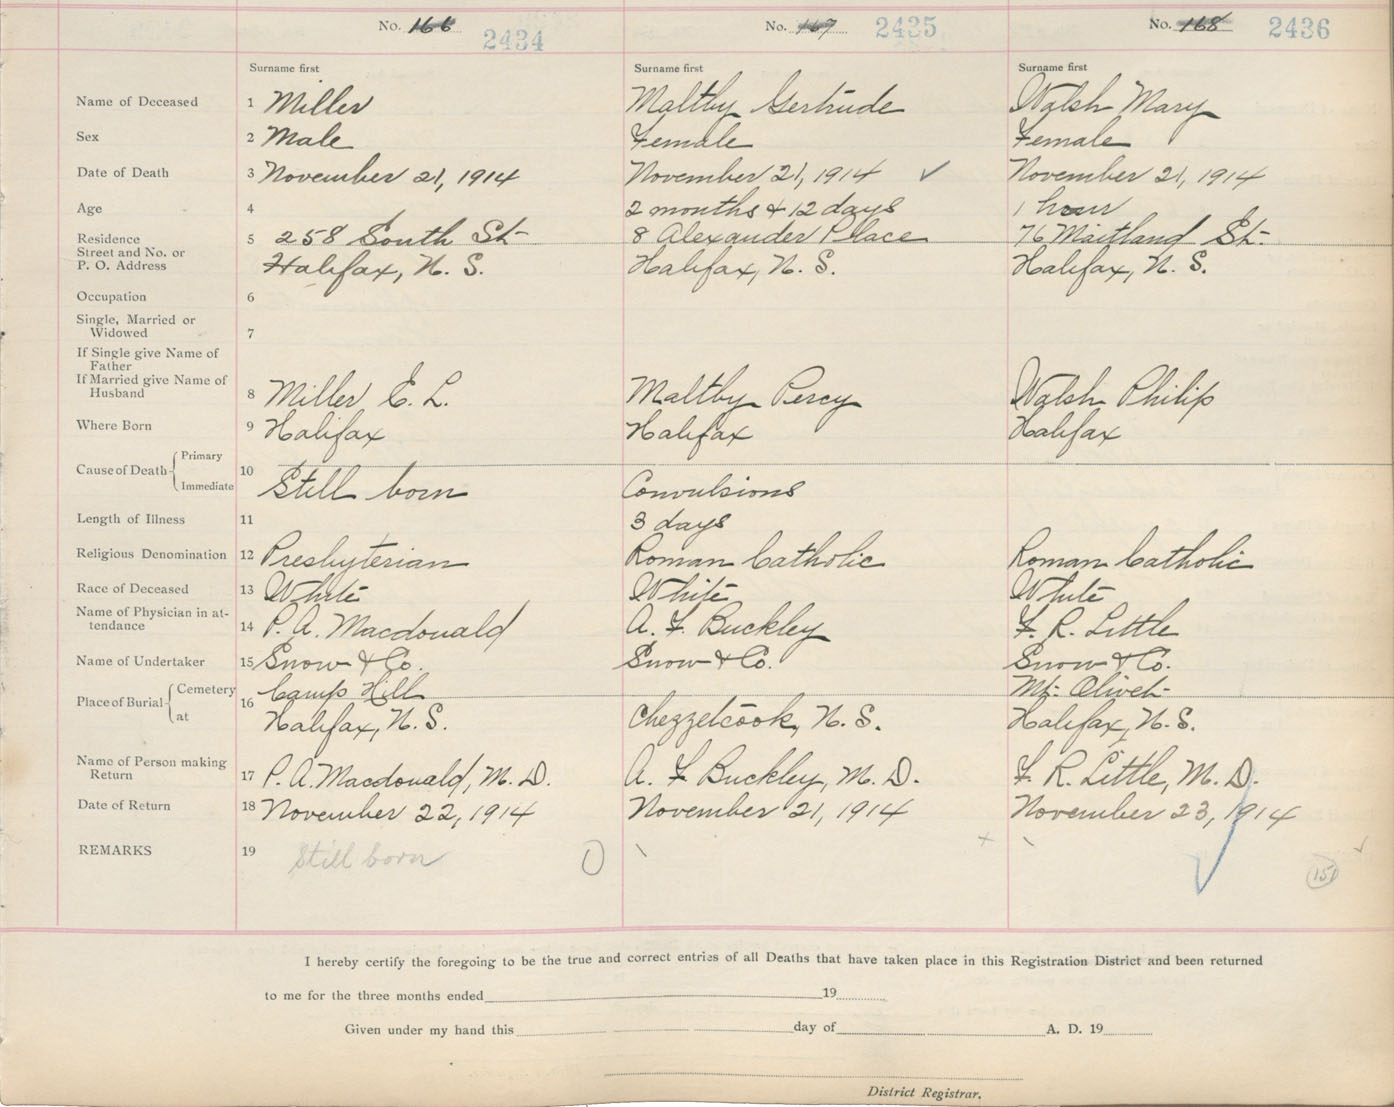 No. 166 2434 No. 167 2435 No. 168 2436
Surname first Surname first Surname first
Name of Deceased 1 Miller Maltby Gertrude Walsh Mary
Sex 2 Male Female Female
Date of Death 3 November 21, 1914 November 21, 1914 ✓ November 21, 1914
Age 4 2 months & 12 days 1 hour
Residence 5 258 South St. 8 Alexander Place 76 Maitland St.
Street and No. or
P. O. Address Halifax, N. S. Halifax, N. S. Halifax, N. S.
Occupation 6
Single, Married or
Widowed 7
If Single give Name of
Father
If Married give Name of
Husband 8 Miller E. L. Maltby Percy Walsh Philip
Where Born 9 Halifax Halifax Halifax
Cause of Death Primary 10
Immediate Still born Convulsions
Length of Illness 11 3 days
Religious Denomination 12 Presbyterian Roman Catholic Roman Catholic
Race of Deceased 13 White White White
Name of Physician in at-
tendance 14 P. A. Macdonald A. F. Buckley F. R. Little
Name of Undertaker 15 Snow & Co. Snow & Co. Snow & Co.
Place of Burial Cemetery 16 Camp Hill Mt. Olivet
at Halifax, N. S. Chezzetcook, N. S. Halifax, N. S.
Name of Person making
Return 17 P. A. Macdonald, M. D. A. F. Buckley, M. D. F. R. Little, M. D.
Date of Return 18 November 22, 1914 November 21, 1914 November 23, 1914
REMARKS 19 Still born 151
I hereby certify the foregoing to be the true and correct entries of all Deaths that have taken place in this Registration District and been returned
to me for the three months ended 19
Given under my hand this day of A. D. 19
District Registrar.